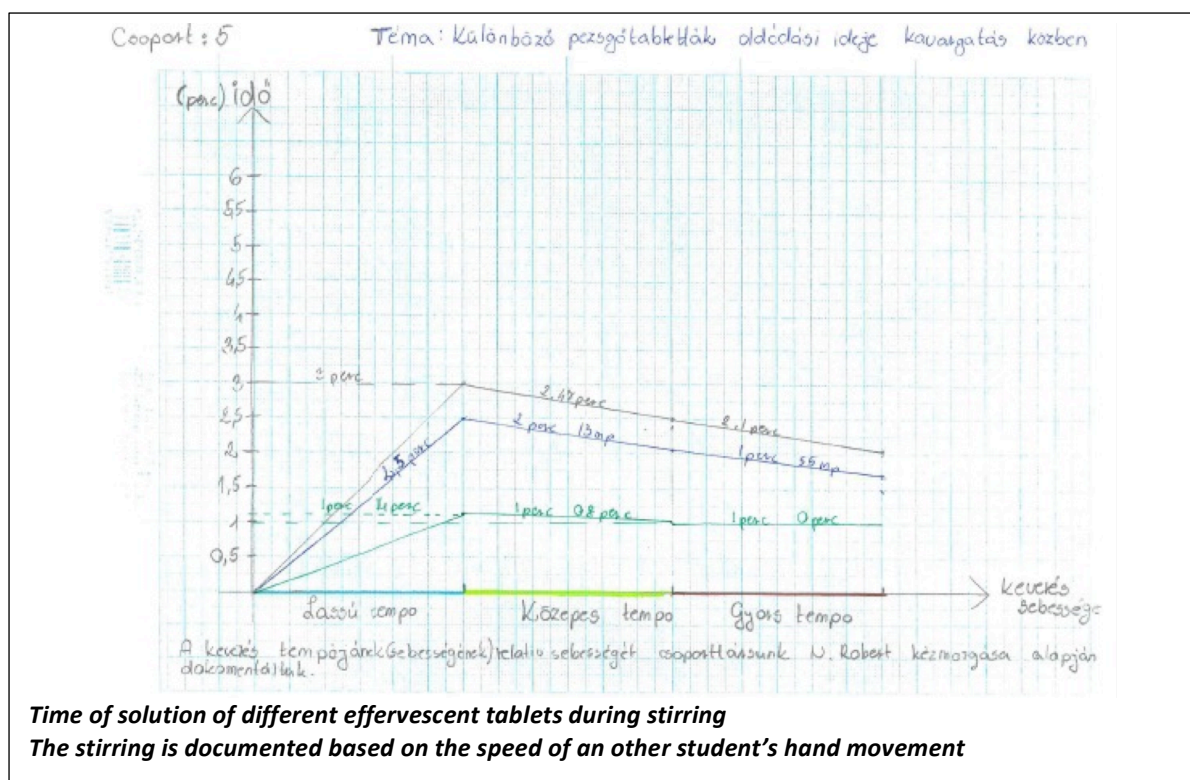 Csoport: 5
Téma: Különböző pezsgőtabletták oldódási ideje kavargatás közben
(perc) idő
6
5,5
5
4,5
4
3,5
3
2,5
2
1,5
1
0,5
3 perc
2,47 perc
2,1 perc
2,5 perc
2 perc 13mp
1 perc 55mp
1 perc perc
1 perc 08 perc
1 perc 0 perc
keverés
sebessége
Lassú tempo
Közepes tempo
Gyors tempo
A keverés tempójának(sebességének) relativ sebességét csoporttársunk N. Robert kézmozgása alapján
dokumentáltuk.
Time of solution of different effervescent tablets during stirring
The stirring is documented based on the speed of an other student's hand movement